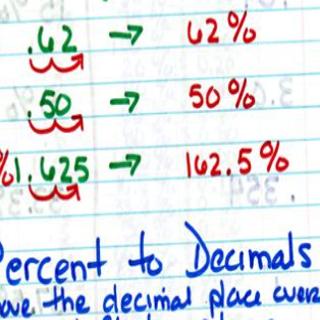 .62 → 62%
.50 → 50%
%1.625 → 162.5%
Percent to Decimals
the decimal place over